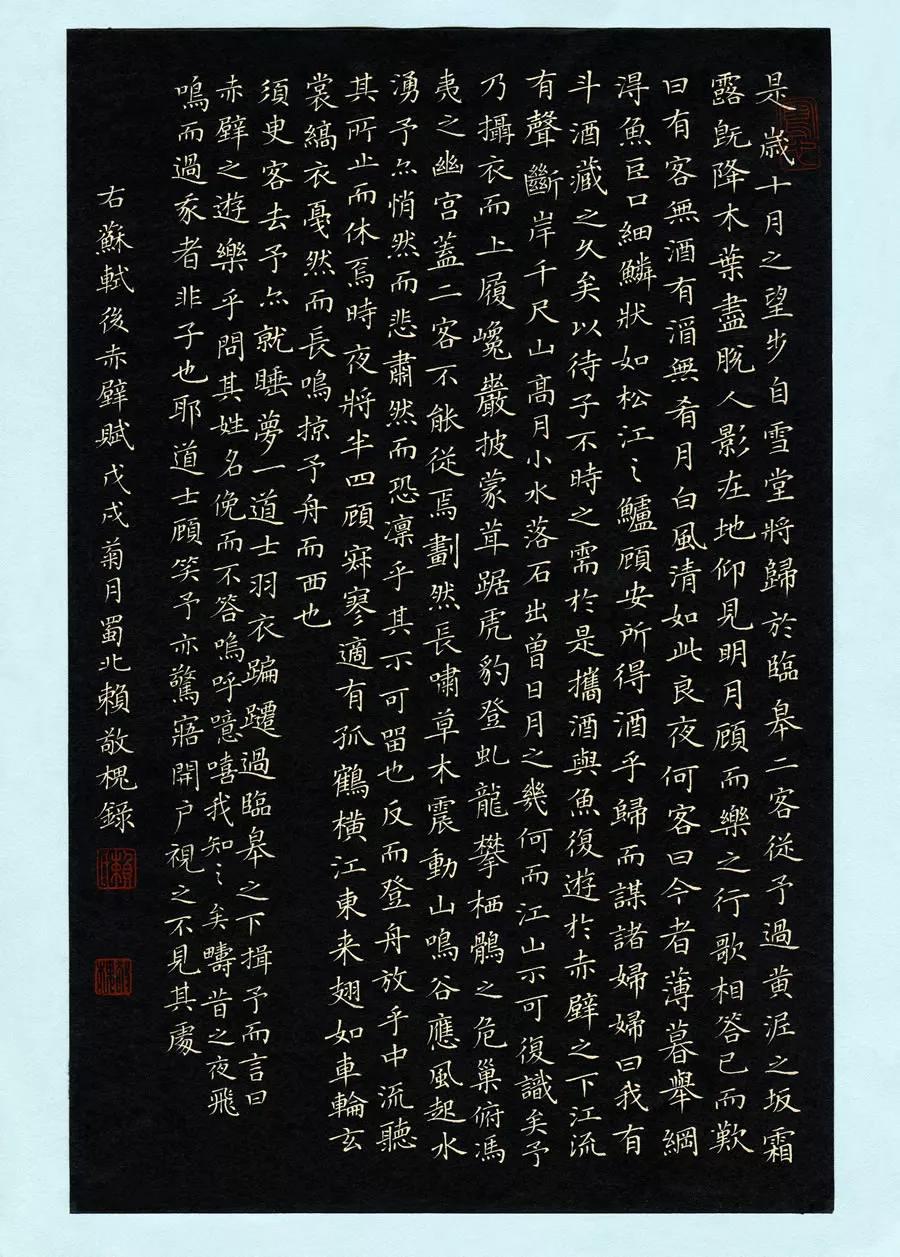 是歲十月之望步自雪堂將歸於臨皋二客從予過黄泥之坂霜
露既降木葉盡脱人影在地仰見明月顧而樂之行歌相答已而歎
曰有客無酒有酒無肴月白風清如此良夜何客曰今者薄暮舉網
得魚巨口細鱗狀如松江之鱸顧安所得酒乎歸而謀諸婦婦曰我有
斗酒藏之久矣以待子不時之需於是攜酒與魚復遊於赤壁之下江流
有聲斷岸千尺山高月小水落石出曾日月之幾何而江山不可復識矣予
乃攝衣而上履巉巖披蒙茸踞虎豹登虬龍攀栖鶻之危巢俯馮
夷之幽宫蓋二客不能從焉劃然長嘯草木震動山鳴谷應風起水
湧予亦悄然而悲肅然而恐凛乎其不可留也反而登舟放乎中流聽
其所止而休焉時夜將半四顧寂寥適有孤鶴横江東来翅如車輪玄
裳縞衣戛然而長鳴掠予舟而西也
須臾客去予亦就睡夢一道士羽衣蹁躚過臨皋之下揖予而言曰
赤壁之遊樂乎問其姓名俛而不答嗚呼噫嘻我知之矣疇昔之夜飛
鳴而過我者非子也耶道士顧笑予亦驚寤開户視之不見其處
右蘇軾後赤壁賦戊戌菊月蜀北賴敬槐録